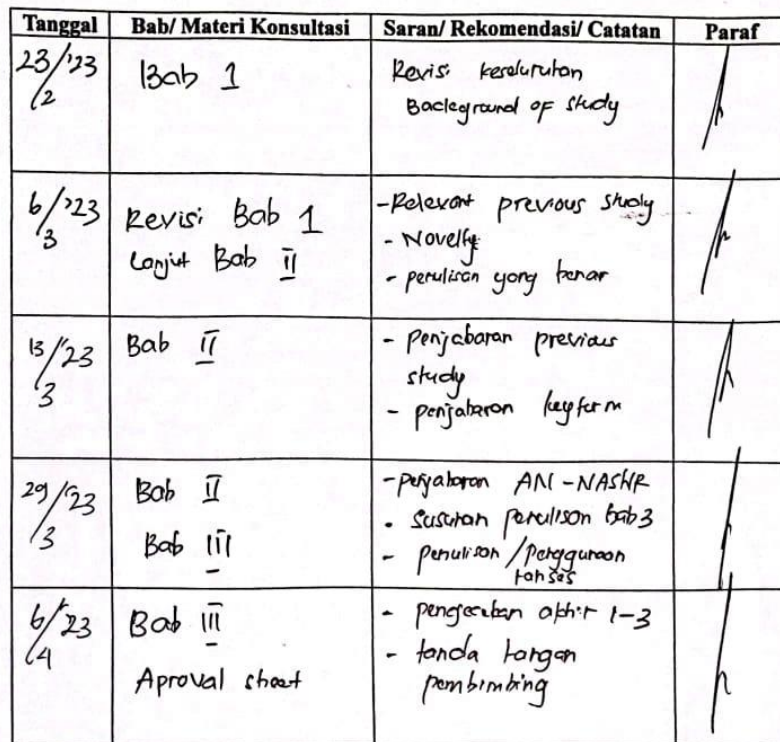 Tanggal Bab/ Materi Konsultasi Saran/ Rekomendasi/ Catatan Paraf
23/2 '23 Bab 1 Revisi keseluruhan
Background of study
6/3 '23 Revisi Bab 1 - Relevant previous study
Lanjut Bab II - Novelty
- penulisan yang benar
13/3 '23 Bab II - Penjabaran previous
study
- penjabaran key term
29/3 '23 Bab II - penjabaran AN-NASHR
Bab III - Susunan penulisan bab 3
- penulisan/penggunaan
tenses
6/4 '23 Bab III - pengecekan akhir 1-3
Aproval sheet - tanda tangan
pembimbing